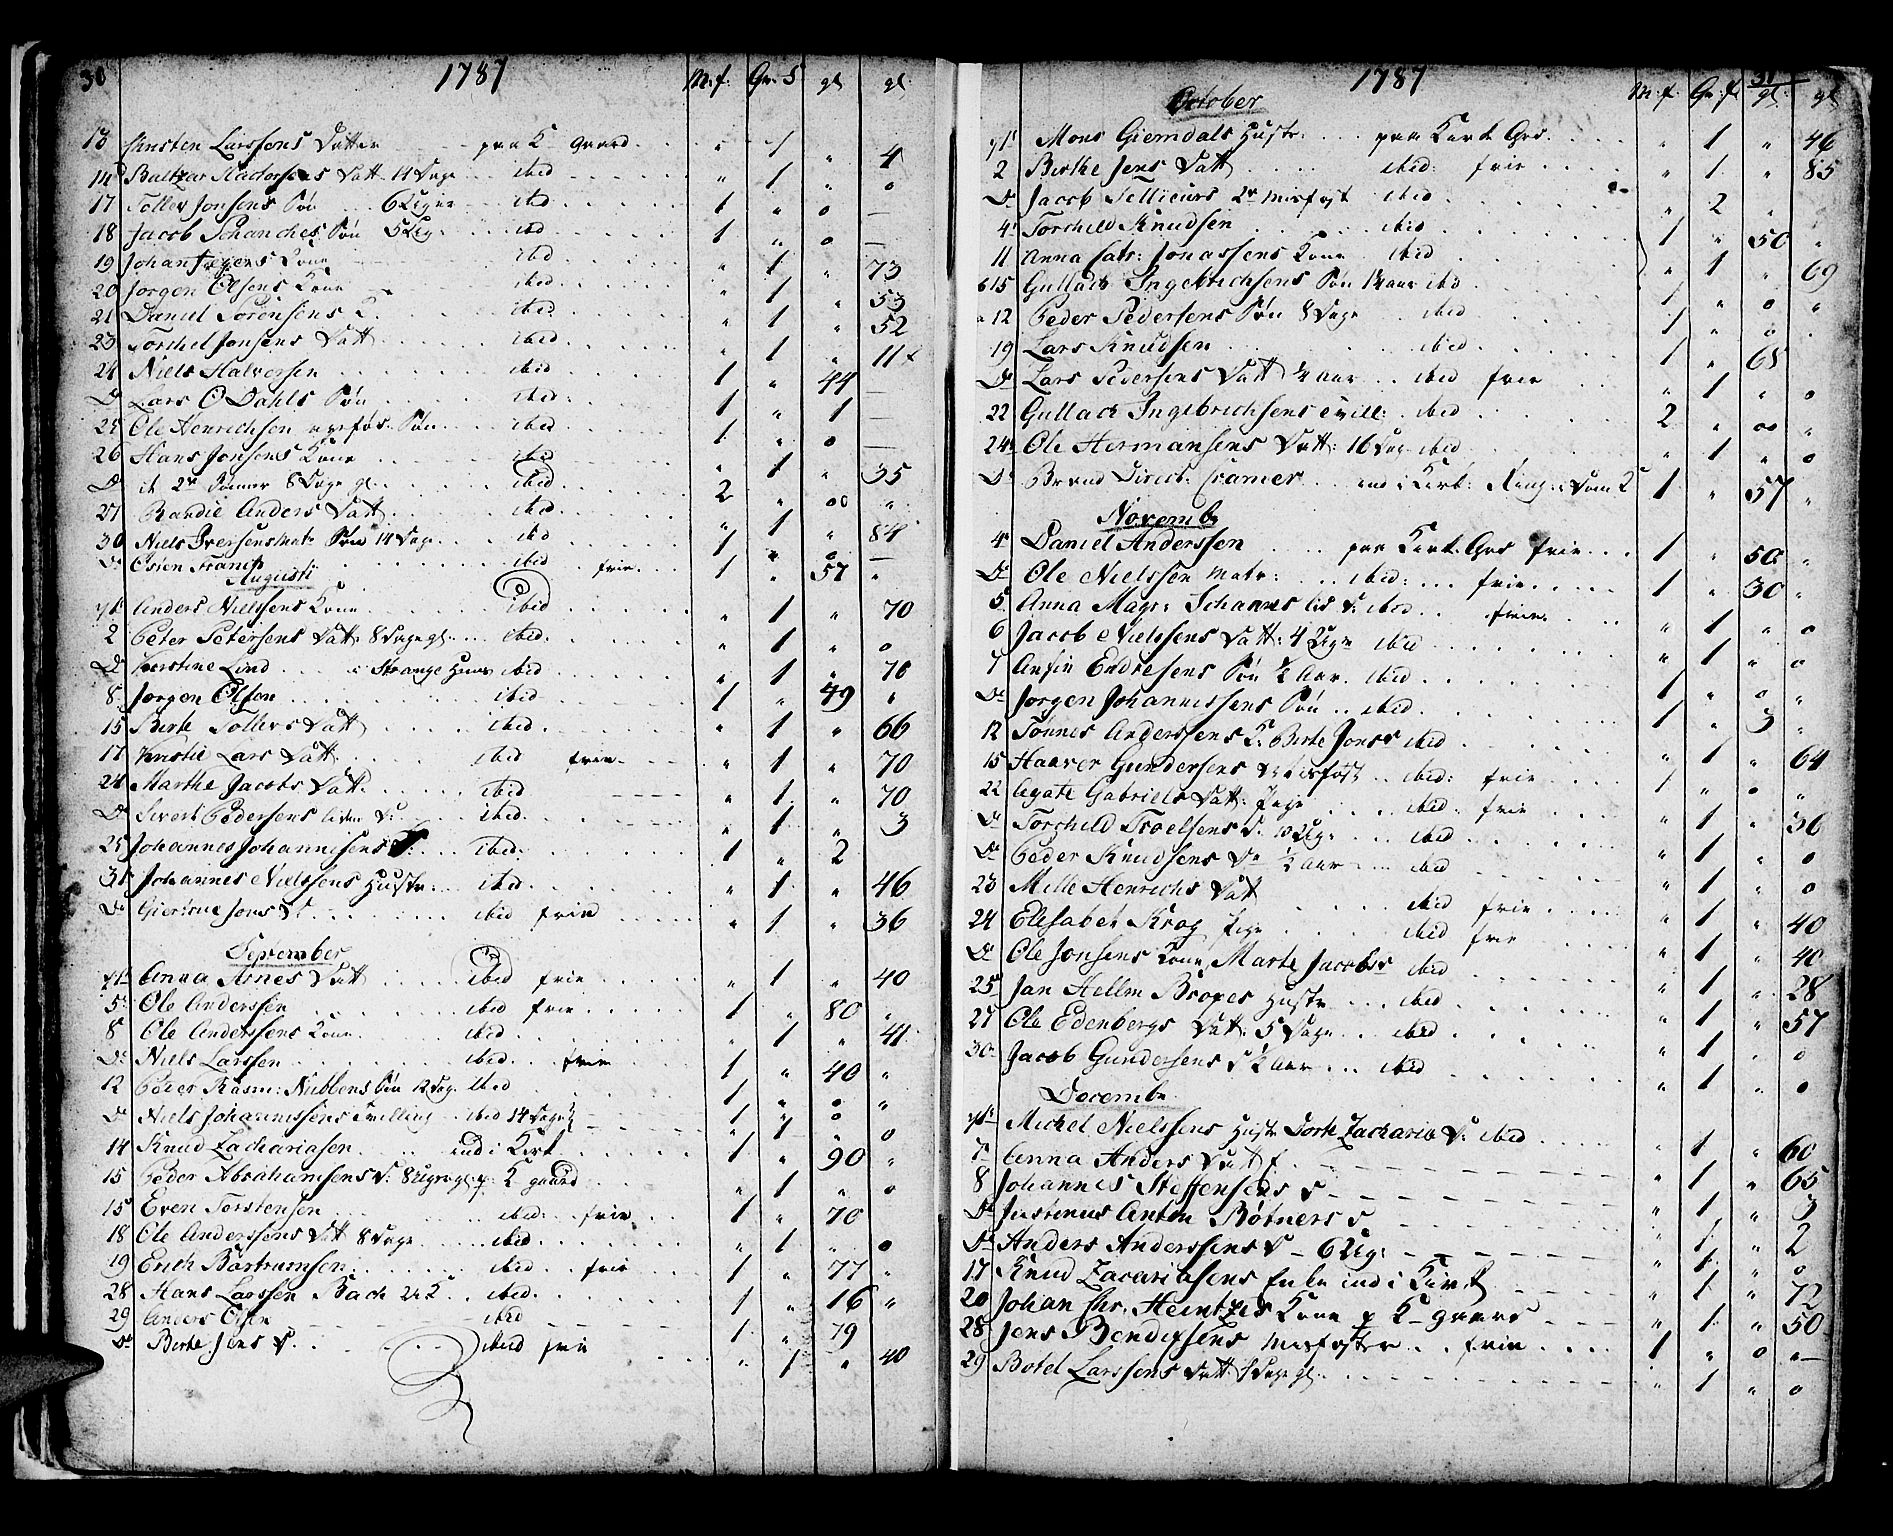 30 1787 M: f. Qv. S gl gl
13 Christen Larssens Datter paa K gaard 1 4
14 Baltzar Datt 14 Dage ibid 1 0
17 Toller Jonsens Søn 6 Uger ibd 1 0
18 Jacob Søn 5 Ug. ibd 1 0
19 Johan Kone ibid 1 73
20 Jørgen Olsens Kone ibid 1 53
21 Daniel Sørensens K. ibid 1 52
23 Torchel Jonsens Datt ibid 1 11
24 Niels Halvorsen ibid 1 44
Do Lars O Dahls Søn ibid 1 1
25 Ole Henrichsen Søn ibid 1 0
26 Hans Jonsens Kone ibid 1 35
Do it 2de Sønner 8 Dage gl. ibid 2 00
27 Randie Anders Datt ibid 1 84
30 Niels Iversens Søn 14 Dage ibd 1 0
Do Osten ibid frie 1 57
Augusti
1 Anders Nielssens Kone ibid 1 70
2 Peter Petersens Datt: 8 Dage gl. ibid 1 0
Do Kirstine Lind i Strange Huus ibid 1 70
8 Jørgen Olsen ibid 1 49
15 Berte Tollers Datt ibid 1 66
17 Kristie Lars Datt ibid frie 1 70
24 Marthe Jacobs Datt ibid 1 70
Do Sivert Pedersens liden D: ibid 1 3
25 Johannes Johannisens S: ibid 1 2
31 Johannes Nielssens Hustr: ibid 1 46
Do Jens D: ibid frie 1 36
September
1 Anna Arnes Datt ibid frie 1 40
5 Ole Anderssen ibid frie 1 80
8 Ole Anderssens Kone ibid 1 41
Do Niels Larssen ibid frie 1 40
12 Peder Rasm: Nubbens Søn 12 Dag. ibid 1 0
Do Niels Johannissens Tvilling ibid 14 Dage 1 1 0 0
14 Knud Zachariasen ind i Kirk 1 90
15 Peder Abrahamsens D: 8 Uger gl. p K gaard 1 0
15 Even Torstensen ibid frie 1 70
18 Ole Anderssens Datt 8 Dage ibid 1 0
19 Erich Bartrumsen ibid frie 1 77
28 Hans Larssen Bach ibid 1 16
29 Anders Olsen ibid 1 79
Do Berte Jens D. ibid frie 1 40
1787 31 M: f. Qv: f. gl. gl
October
1 Mons Giemdals Hustr: paa Kirk Grd 1 46
2 Berthe Jens Datt ibid: frie 1 85
Do Jacob 2de misfost ibid 2
4 Torchild Knudsen ibid 1 50
11 Anna Catr: Jonassens Kone ibid 1 69
15 Gullach Ingebrichsens Søn 1/2 aar ibd 1 0
12 Peder Pedersens Søn 8 Dage ibid 1 0
19 Lars Knudsen ibid 1 68
Do Lars Pedersens Datt 1/4 aar ibid frie 1 0
22 Gullach Ingebrichsens tvill: ibid 2 00
24 Ole Hermansens Datt: 16 Dag ibid 1 0
Do Brand Direct: Cramer ind i Kirk: 1 57
Novemb
4 Daniel Anderssen paa Kirk: Grd frie 1 50
Do Ole Nielssen matr: ibid: frie 1 30
5 Anna Magr: lis D: ibid frie 1 0
6 Jacob Nielssens Datt: 4 Uger ibid 1 0
7 Ansin Endresens Søn 1/2 Aar. ibid 1 0
Do Jørgen Johannissens Søn ibid 1 3
12 Tønnes Anderssens K: Berte Jonss ibid 1 64
15 Haaver Gundersens misfost ibid: frie 1 0
22 Agate Gabriels Datt: Pige ibid: frie 1 36
Do Torchild Troelsens D. 10 Uge ibid 1 0
Do Peder Knudsens Dr 1/2 aar ibid 1 0
23 Mille Henrichs Datt ibid frie 1 40
24 Elisabet Krog Pige ibid frie 1 40
Do Ole Jonsens Kone Marte Jacobss ibid 1 28
25 Jan Hellm Bropes Hustr ibid 1 57
27 Ole Edenbergs Datt: 5 Dage ibid 1 0
30 Jacob Gundersens D 1/2 aar ibid 1 0
Decemb
1 Michel Nielssens Hustr Dorte Zacharia D: ibid 1 60
7 Anna Anders Datt f. 1 65
8 Johannes Steffensens D 1 3
Do Justinus Anton Bøtners D. 1 2
Do Anders Anderssens D 6 Ug: 1 0
17 Knud Zacariasens Enke ind i Kirk 1 72
20 Johan Chr. Heintzes Kone p K gaard 1 50
28 Jens Bendixsens Misfoster frie 1 0
29 Botel Larssens Datt: 8 Dage gl. 1 0